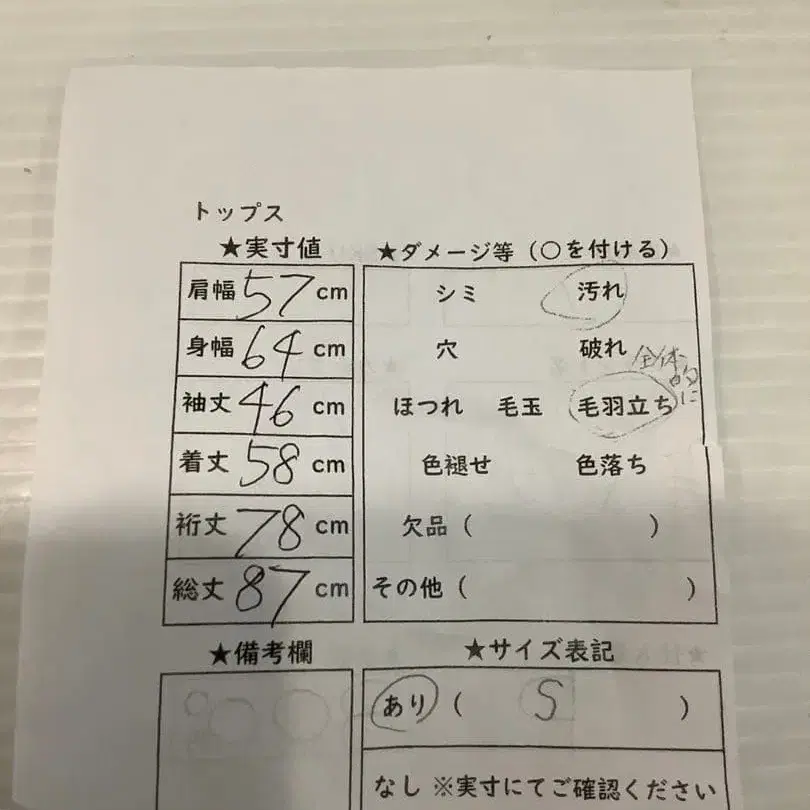 トップス
★実寸値
肩幅 57 cm
身幅 64 cm
袖丈 46 cm
着丈 58 cm
裄丈 78 cm
総丈 87 cm
★備考欄
★ダメージ等（○を付ける）
シミ 汚れ
穴 破れ
全体的に
ほつれ 毛玉 毛羽立ち
色褪せ 色落ち
欠品（ ）
その他（ ）
★サイズ表記
あり（ S ）
なし ※実寸にてご確認ください